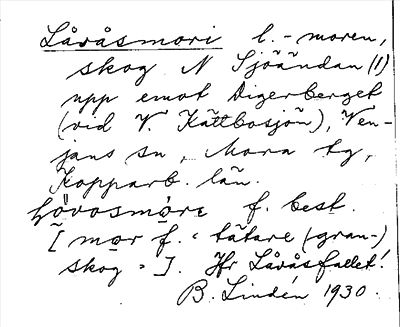 Låråsmori l.-moren,
skog N Sjöändan (1)
upp emot Digerberget
(vid V. Kättbosjön), Ven-
jans sn, Mora tg,
Kopparb. län.
f. best.
[mor f. "tätare (gran-)
skog"]. Jfr Låråsfallet!
B. Lindén 1930.